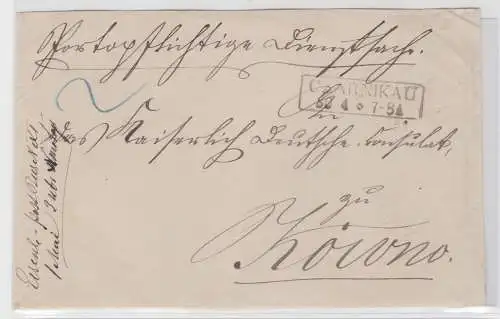 Portopflichtige Dienstsache.
CZARNIKAU
4 7-8A
2
An
das Kaiserlich Deutsche Consulat,
zu
Kowno.